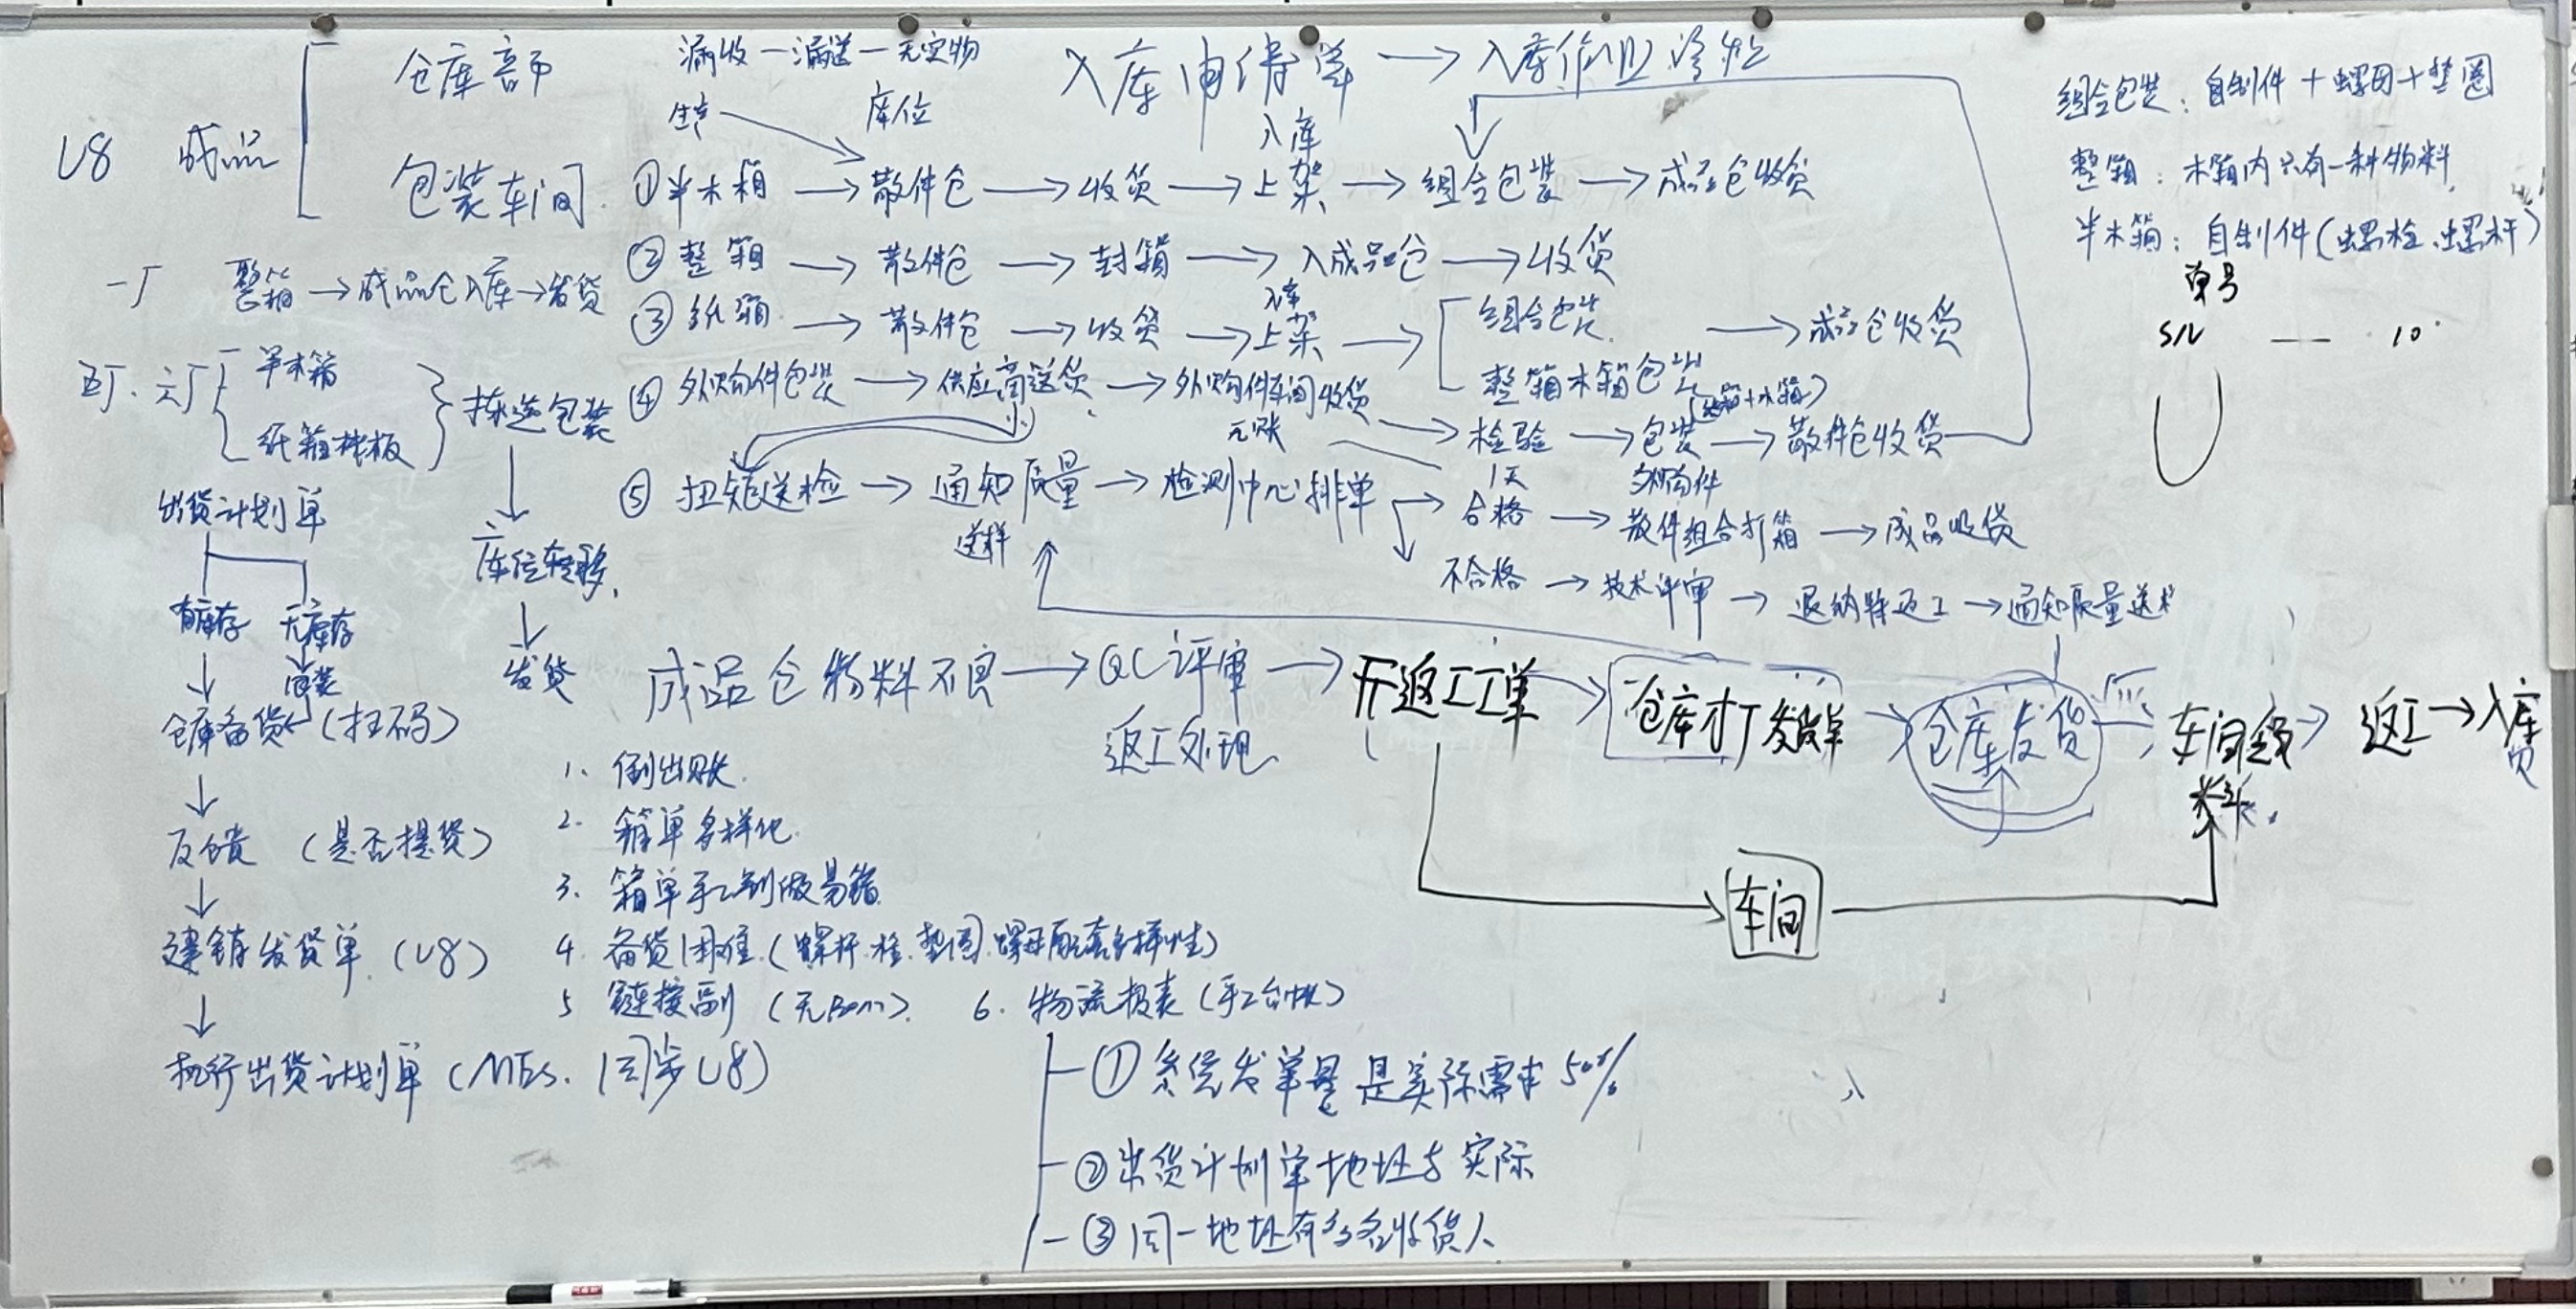 U8 成品
仓库部
包装车间
漏收—漏送—无实物
生产
库位
入库申请单 → 入库
入库
①半木箱 → 散件仓 → 收货 → 上架 → 组合包装 → 成品仓收货
②整箱 → 散件仓 → 封箱 → 入成品仓 → 收货
入库
③纸箱 → 散件仓 → 收货 → 上架 →
组合包装
整箱木箱包装
→ 成品仓收货
④外购件包装 → 供应商送货 → 外购件车间收货
无账
→ 检验 → 包装 (纸箱+木箱) → 散件仓收货
1天
外购件
⑤扭矩送检 → 通知质量 → 检测中心排单
送样
合格 → 散件组合打箱 → 成品收货
不合格 → 技术评审 → 通知质量送
组合包装：自制件+螺母+垫圈
整箱：木箱内只有一种物料
半木箱：自制件(螺栓、螺杆)
单号
S/N — 10
一厂 整箱 → 成品仓入库 → 发货
五厂、六厂
半木箱
纸箱栈板
拣选包装
库位转移
发货
出货计划单
有库存
无库存
包装
仓库备货 (扫码)
反馈 (是否提货)
建销发货单 (U8)
执行出货计划单 (MES、同步U8)
成品仓物料不良 → QC评审 → 开返工工单 → 仓库打发货单 → 仓库发货 → 车间 → 返工 → 入库
返工处理
车间
1、倒出账
2、箱单多样化
3、箱单手工制做易错
4、备货困难 (螺杆、栓、垫圈、螺母配套多样性)
5 链接副 (无Bom)
6、物流报表 (手工台帐)
①系统发单量是实际需求50%
②出货计划单地址与实际
③同一地址有多名收货人